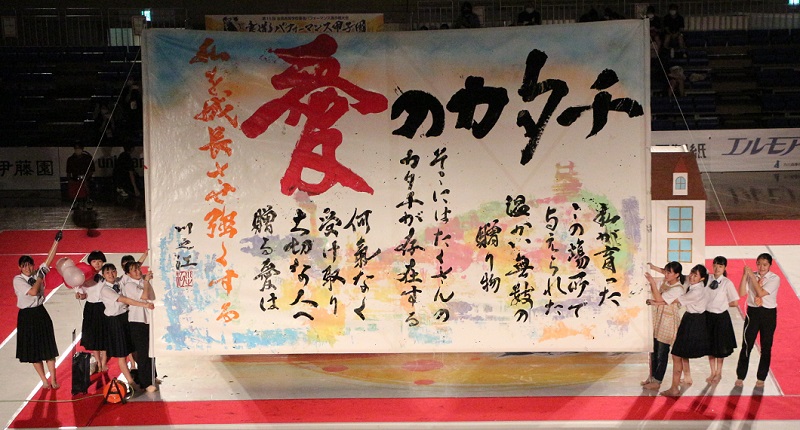 書道パフォーマンス甲子園
愛のカタチ
私が育った
この場所で
与えられた
温かい無数の
贈り物
そこにはたくさんの
カタチが存在する
何気なく
受け取り
大切な人へ
贈る愛は
私を成長させ強くする
川之江
伊藤園
エルモア
紙